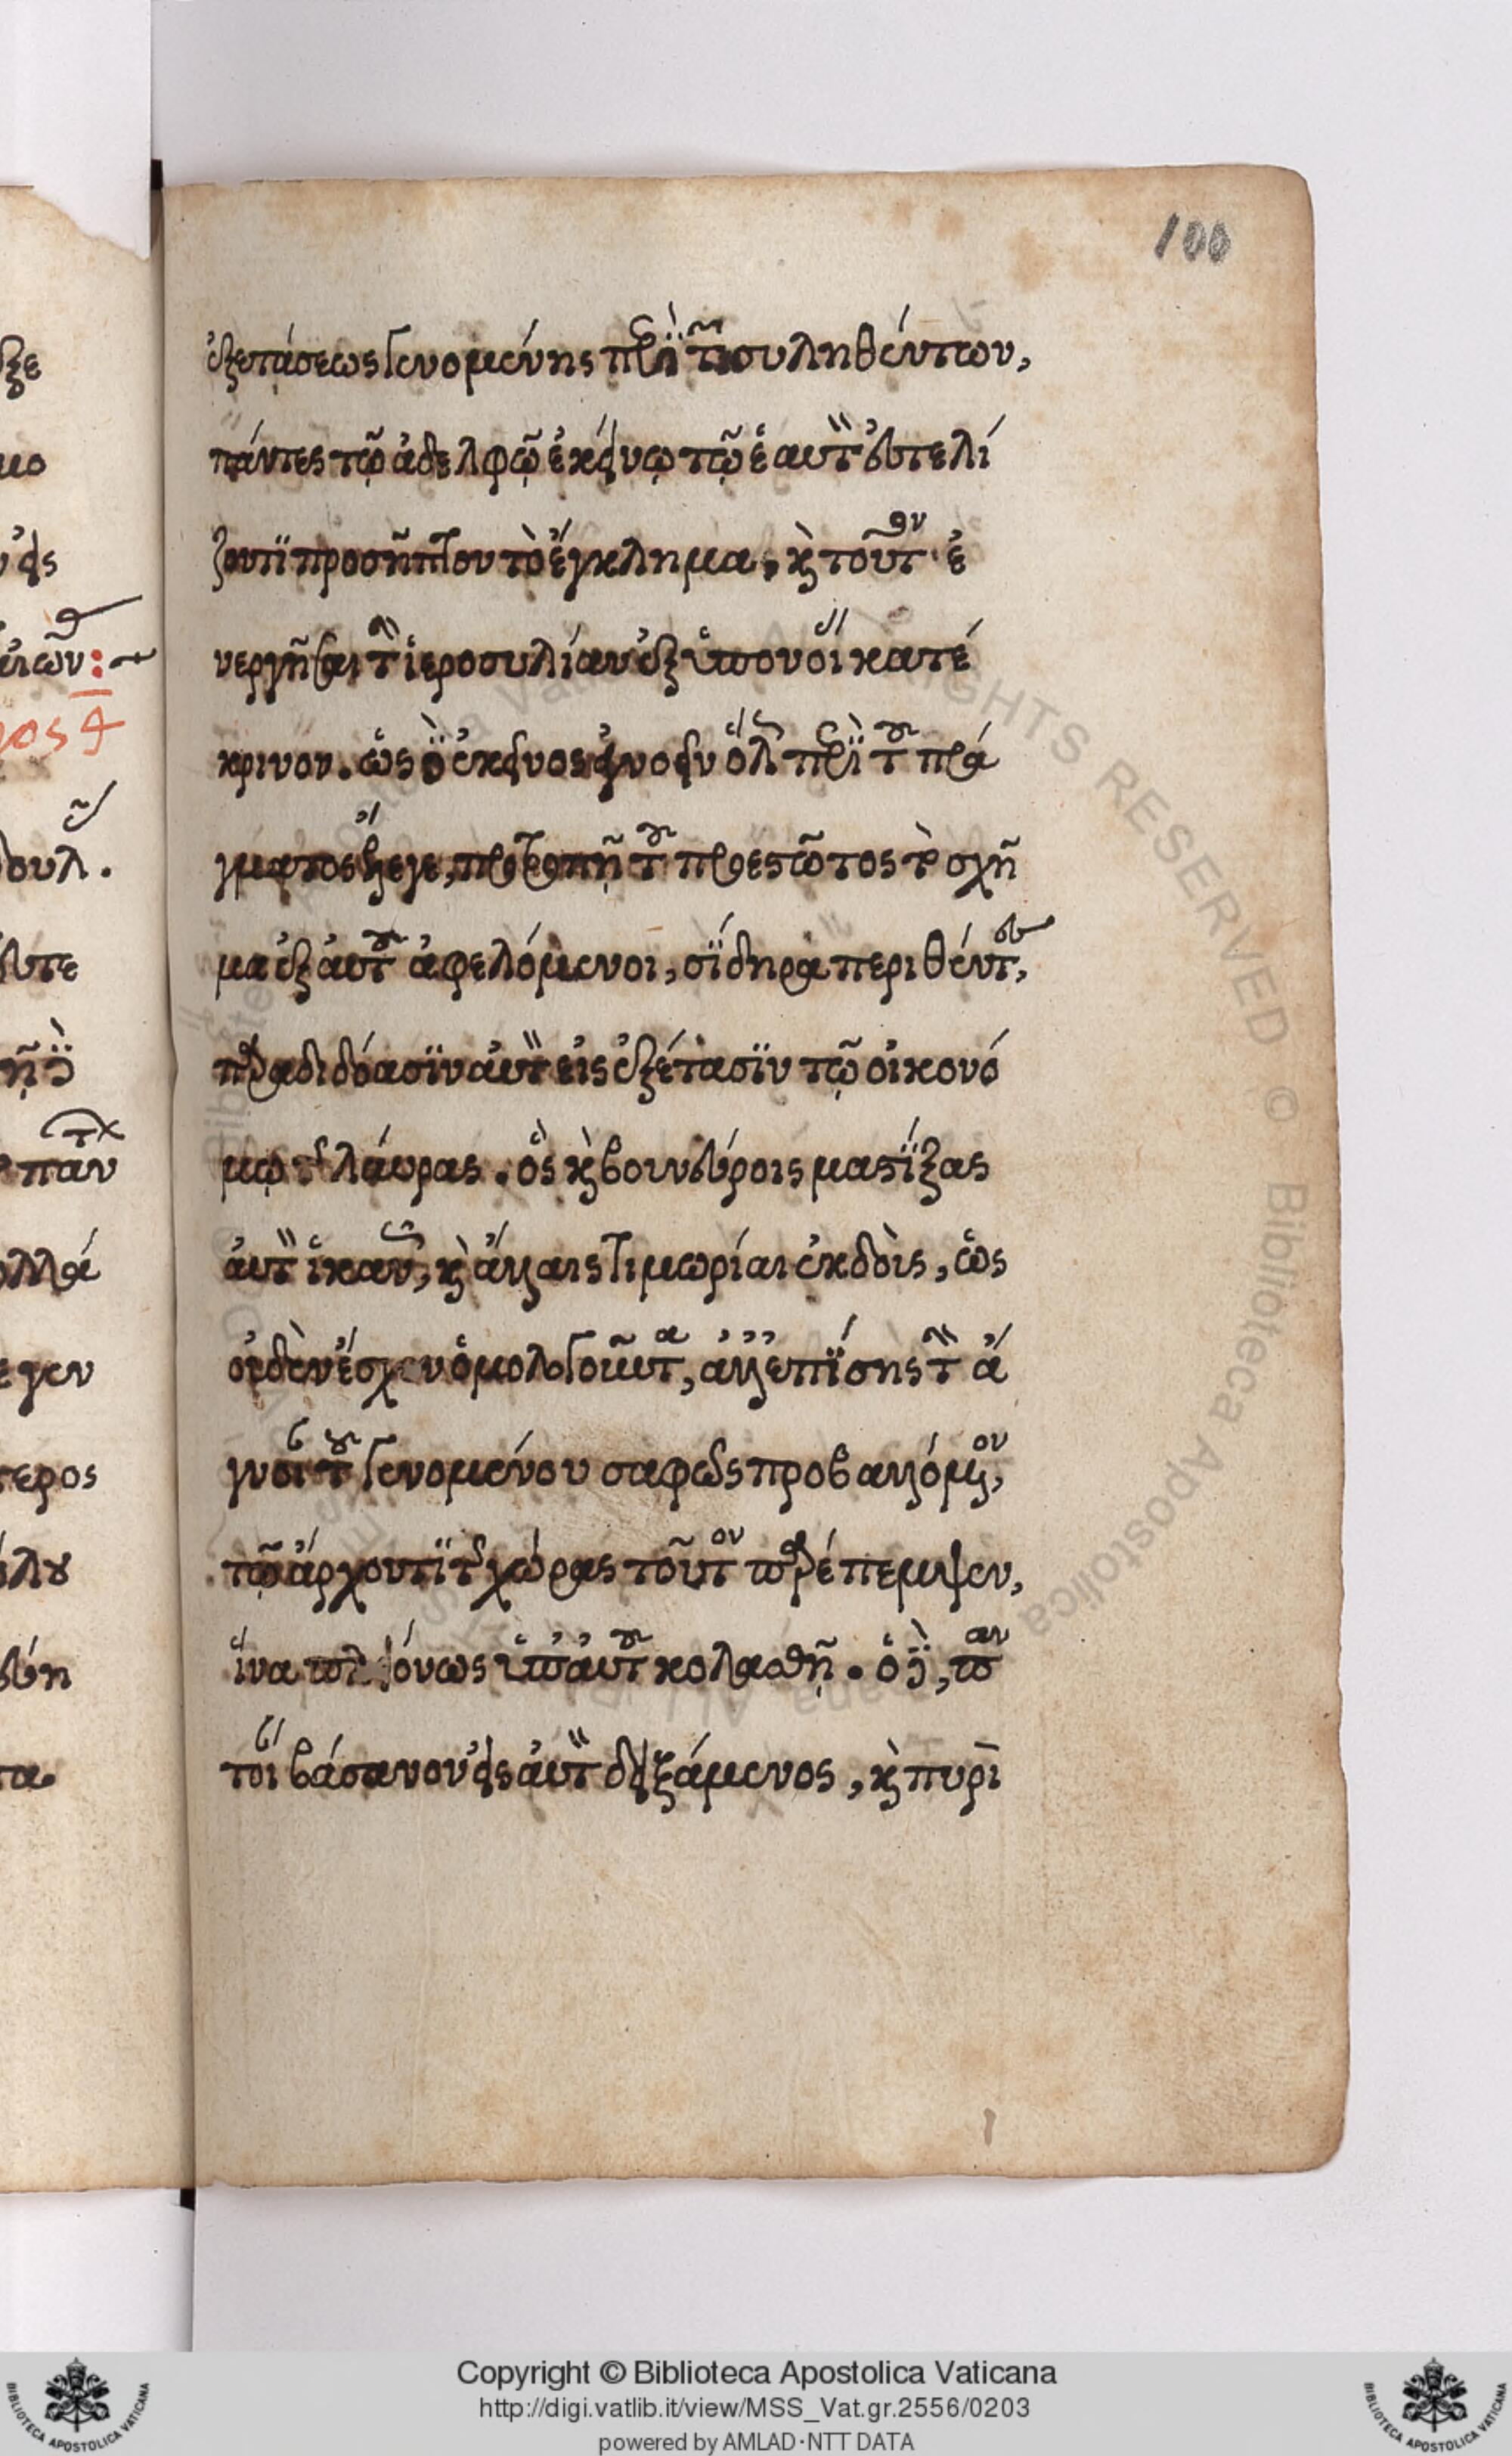 100
ἐξετάσεως γενομένης περὶ τῶν συληθέντων,
πάντες τῷ ἀδελφῷ ἐκείνῳ τῷ ἑαυτὸν εὐτελί
ζοντι προσῆπτον τὸ ἔγκλημα, κ τοῦτον ἐ
νεργῆσαι τὴν ἱεροσυλίαν ἐξ ὑπονοίας κατέ
κρινον. ὡς δὲ ἐκεῖνος ἀγνοεῖν ὅλως περὶ τοῦ πρά
γματος ἔλεγε, προτροπῇ τοῦ προεστῶτος τὸ σχῆ
μα ἐξ αὐτοῦ ἀφελόμενοι, σίδηρα περιθέντες,
παραδιδόασιν αὐτὸν εἰς ἐξέτασιν τῷ οἰκονό
μῳ τῆς λαύρας. ὃς κ βουνεύροις μαστίξας
αὐτὸν ἱκανῶς, κ ἄλλαις τιμωρίαις ἐκδοὺς, ὡς
οὐδὲν ἔσχεν ὁμολογοῦντα, ἀλλ' ἐπίσης τὴν ἄ
γνοιαν τοῦ γενομένου σαφῶς προβαλλόμενον,
τῷ ἄρχοντι τῆς χώρας τοῦτον παρέπεμψεν,
ἵνα ὑπ' αὐτοῦ κολασθῇ. ὁ δὲ, παν
τοίαις βασάνοις αὐτὸν, κ πυρὶ
εγεν
τερος
Copyright © Biblioteca Apostolica Vaticana
http://digi.vatlib.it/view/MSS_Vat.gr.2556/0203
powered by AMLAD·NTT DATA
BIBLIOTECA APOSTOLICA VATICANA
BIBLIOTECA APOSTOLICA VATICANA